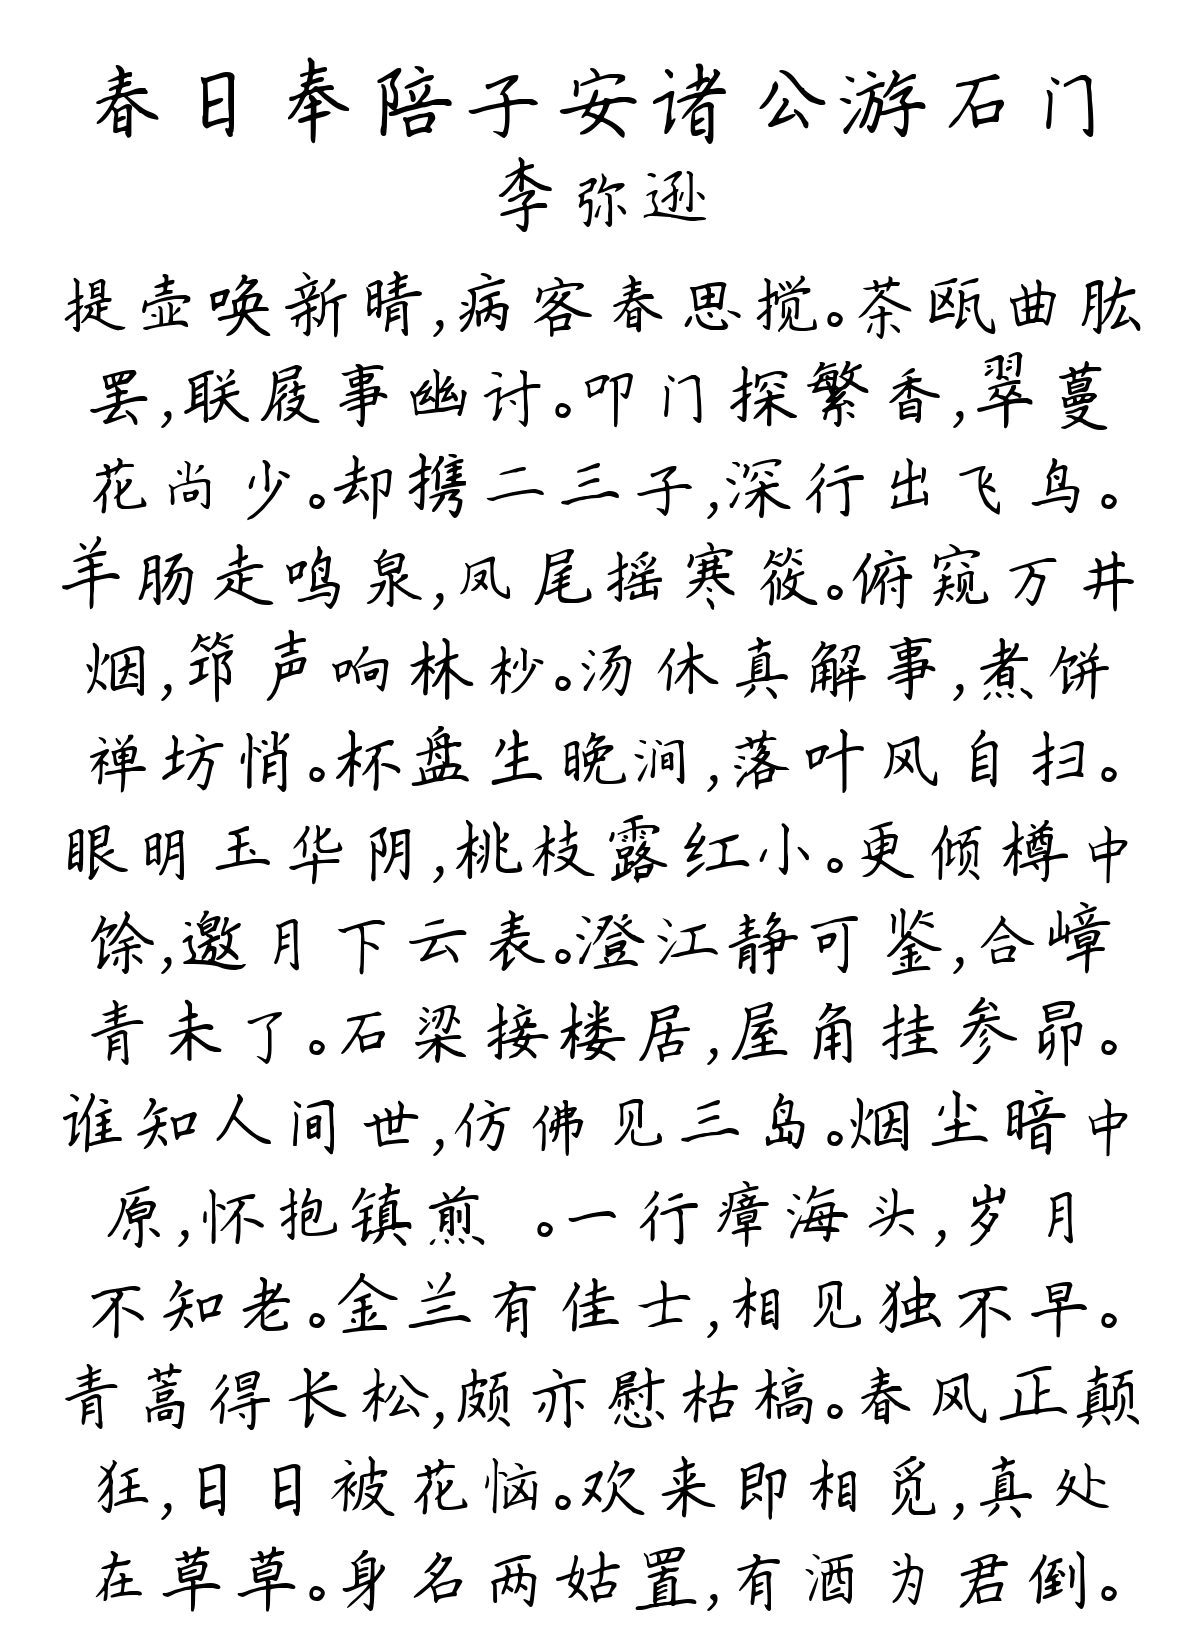 春日奉陪子安诸公游石门
李弥逊
提壶唤新晴,病客春思搅。茶瓯曲肱
罢,联屐事幽讨。叩门探繁香,翠蔓
花尚少。却携二三子,深行出飞鸟。
羊肠走鸣泉,凤尾摇寒筱。俯窥万井
烟,筇声响林杪。汤休真解事,煮饼
禅坊悄。杯盘生晚涧,落叶风自扫。
眼明玉华阴,桃枝露红小。更倾樽中
馀,邀月下云表。澄江静可鉴,合嶂
青未了。石梁接楼居,屋角挂参昴。
谁知人间世,仿佛见三岛。烟尘暗中
原,怀抱镇煎 。一行瘴海头,岁月
不知老。金兰有佳士,相见独不早。
青蒿得长松,颇亦慰枯槁。春风正颠
狂,日日被花恼。欢来即相觅,真处
在草草。身名两姑置,有酒为君倒。